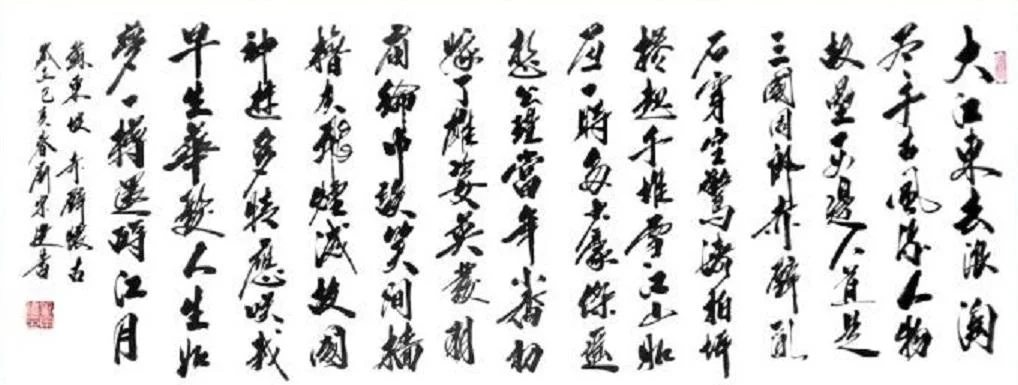 大江東去浪淘
尽千古風流人物
故壘西邊人道是
三國周郎赤壁亂
石穿空驚濤拍岸
捲起千堆雪江山如
画一時多少豪傑遥
想公瑾當年小喬初
嫁了雄姿英發羽
扇綸巾談笑間檣
櫓灰飛煙滅故國
神遊多情應笑我
早生華髮人生如
夢一樽還酹江月
蘇東坡赤壁懷古
己亥春